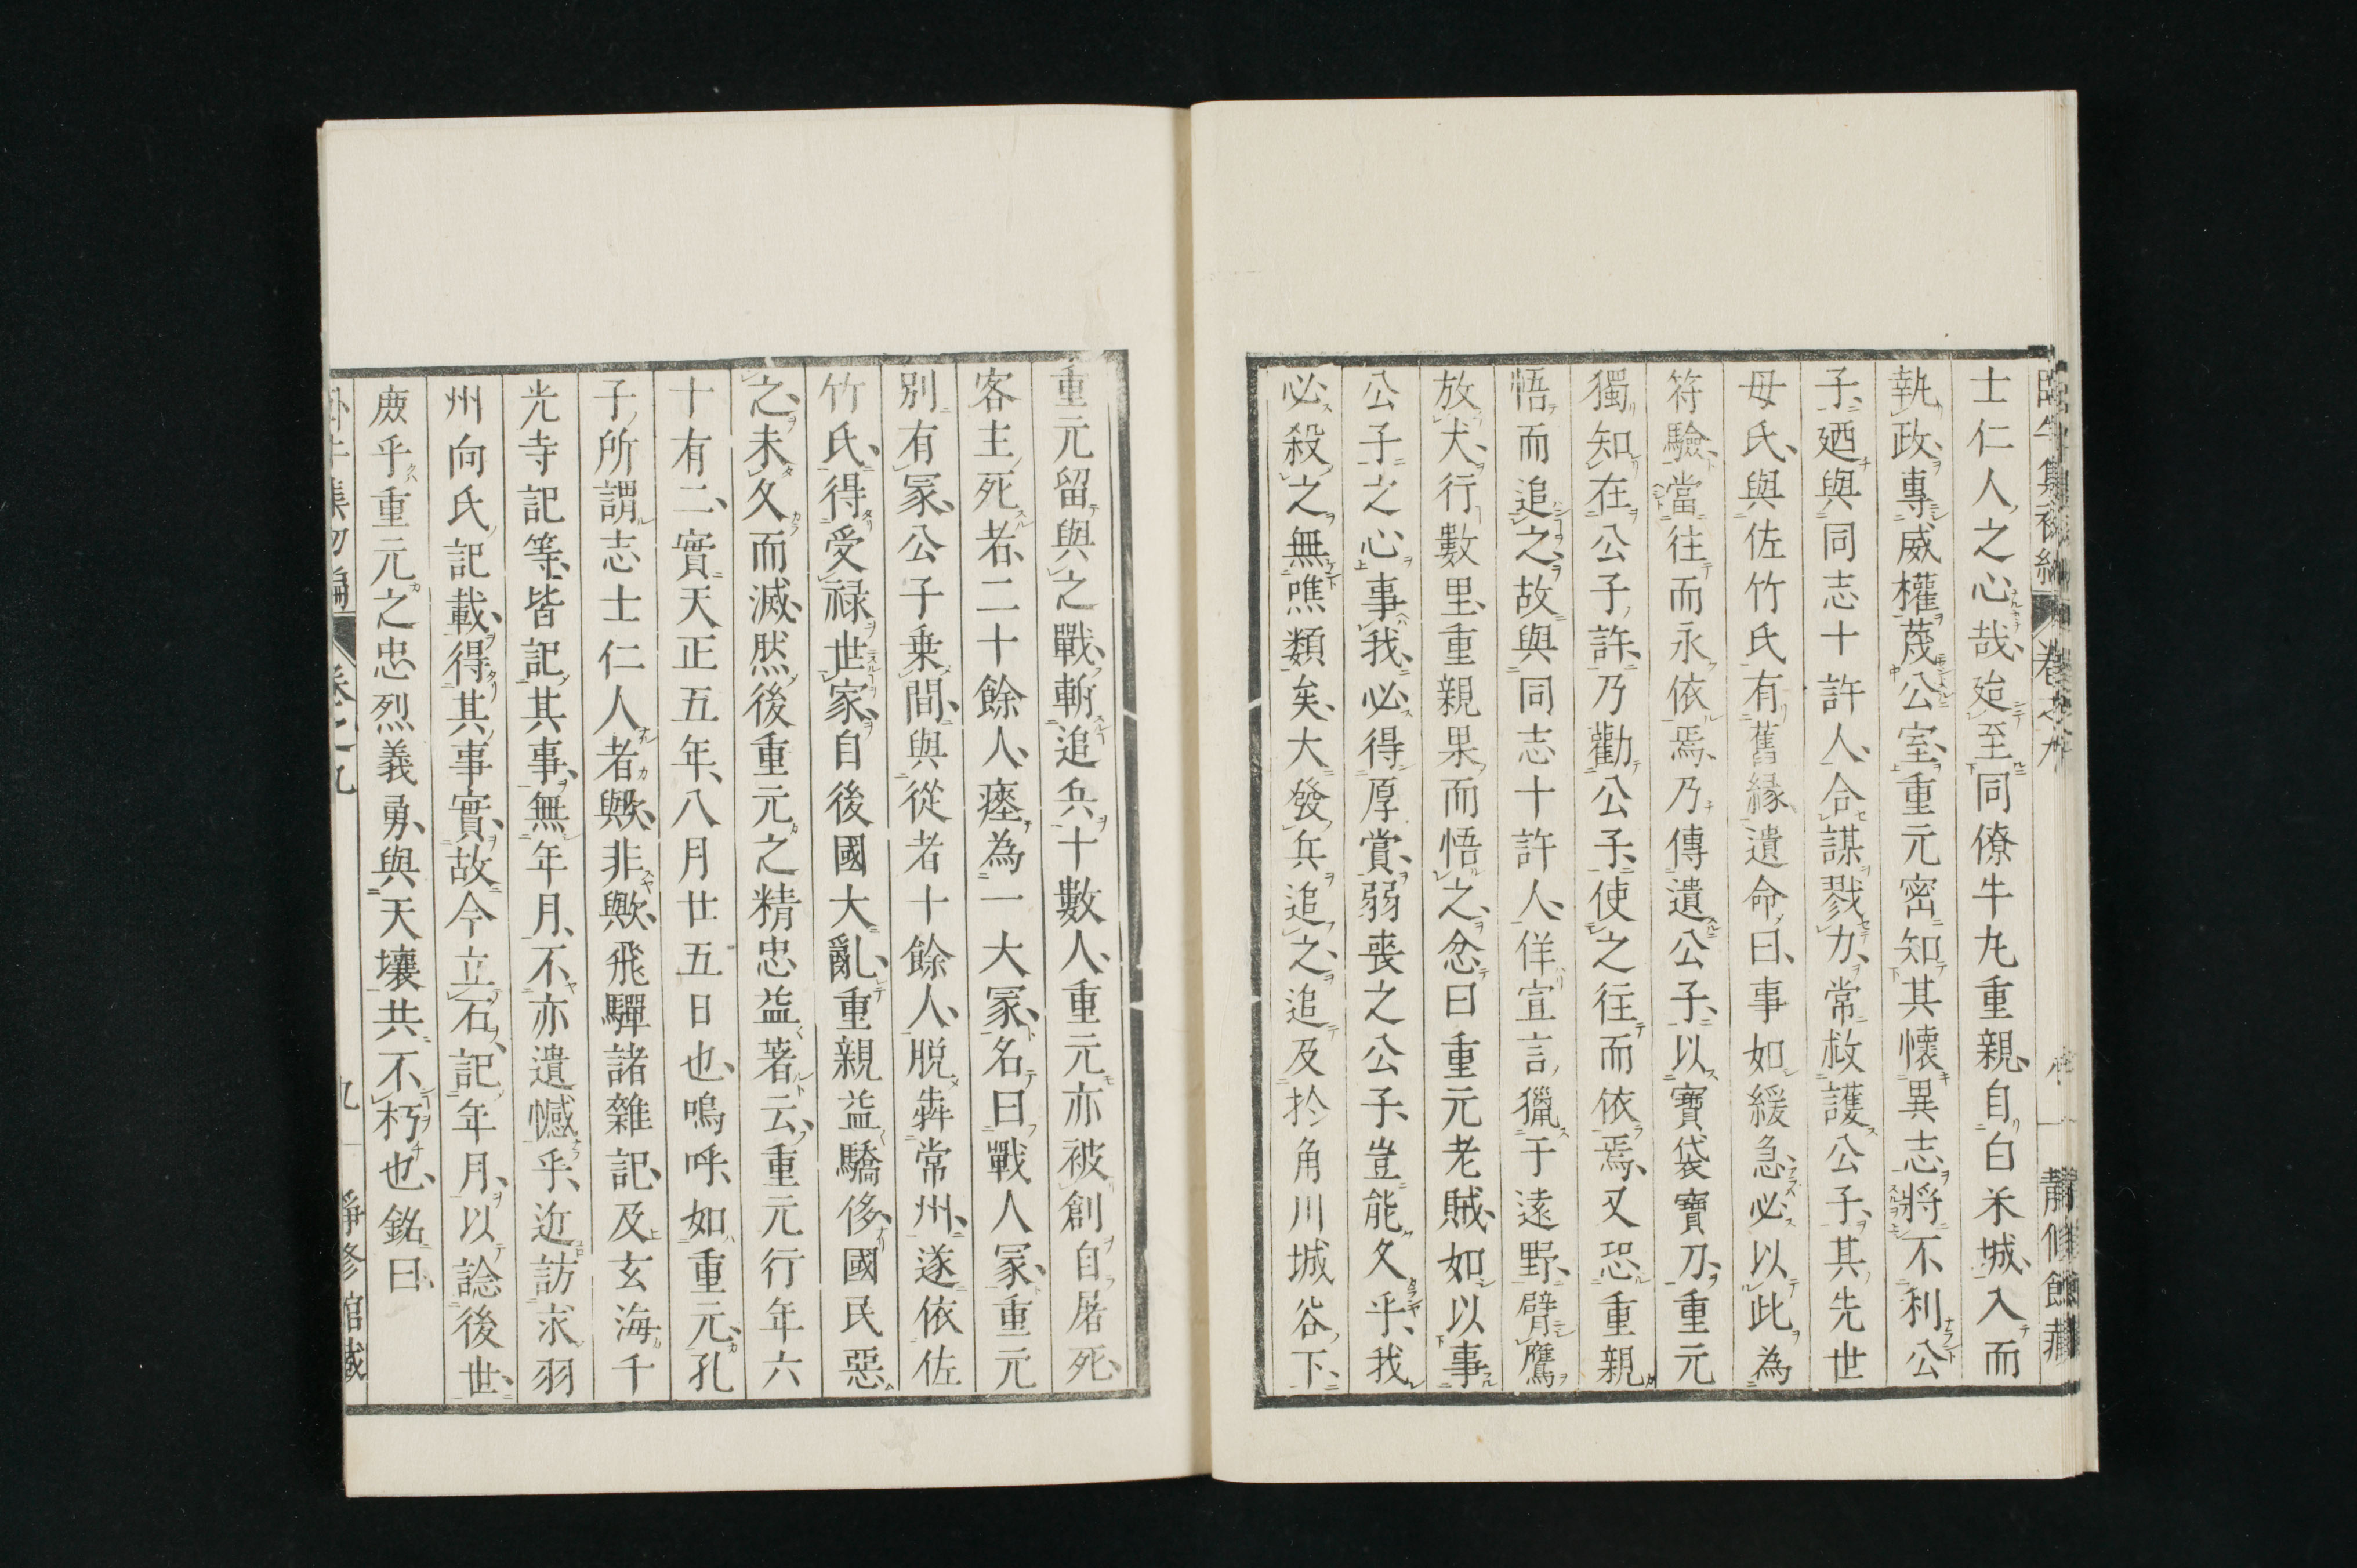 士仁人之心哉、迨至同僚牛丸重親、自白米城、入而
執政、專威權蔑公室、重元密知其懷異志、將不利公
子、廼與同志十許人、合謀戮力、常救護公子、其先世
母氏、與佐竹氏有舊縁、遺命曰、事如緩急、必以此為
符驗、當往而永依焉、乃傳遺公子、以寶袋寶刀、重元
獨知在公子許、乃勸公子、使之往而依焉、又恐重親
悟而追之、故與同志十許人、佯宣言、獵于遠野、臂鷹
放犬、行數里、重親果而悟之、忿曰重元老賊、如以事
公子之心事我、必得厚賞、弱喪之公子、豈能久乎、我
必殺之無噍類矣、大發兵追之、追及於角川城谷下、
重元留與之戰、斬追兵十數人、重元亦被創自屠死、
客主死者、二十餘人、瘞為一大冢、名曰戰人冢、重元
別有冢、公子乗間、與從者十餘人、脱犇常州、遂依佐
竹氏、得受禄世家、自後國大亂、重親益驕侈、國民惡
之、未久而滅、然後重元之精忠益著云、重元行年六
十有二、實天正五年、八月廿五日也、嗚呼、如重元、孔
子所謂志士仁人者歟、非歟、飛驒諸雜記、及玄海千
光寺記等、皆記其事、無年月、不亦遺憾乎、近訪求羽
州向氏記載、得其事實、故今立石、記年月、以諗後世、
庶乎重元之忠烈義勇、與天壤共不朽也、銘曰、
卷之九
九
靜修館藏